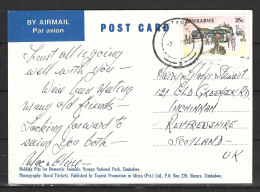 BY AIRMAIL
Par avion
POST CARD
ZIMBABWE
35c
Trust all is going
well with you -
Was been meeting
many old friends -
Looking forward to
seeing you both -
121 Old Greenock Rd
Inchinnan
Renfrewshire
Scotland
UK
Holding Pits for Domestic Animals, Nyanga National Park, Zimbabwe
Photography: David Trickett. Published by Tourist Promotion in Africa (Pvt) Ltd., P.O. Box 220, Harare, Zimbabwe.